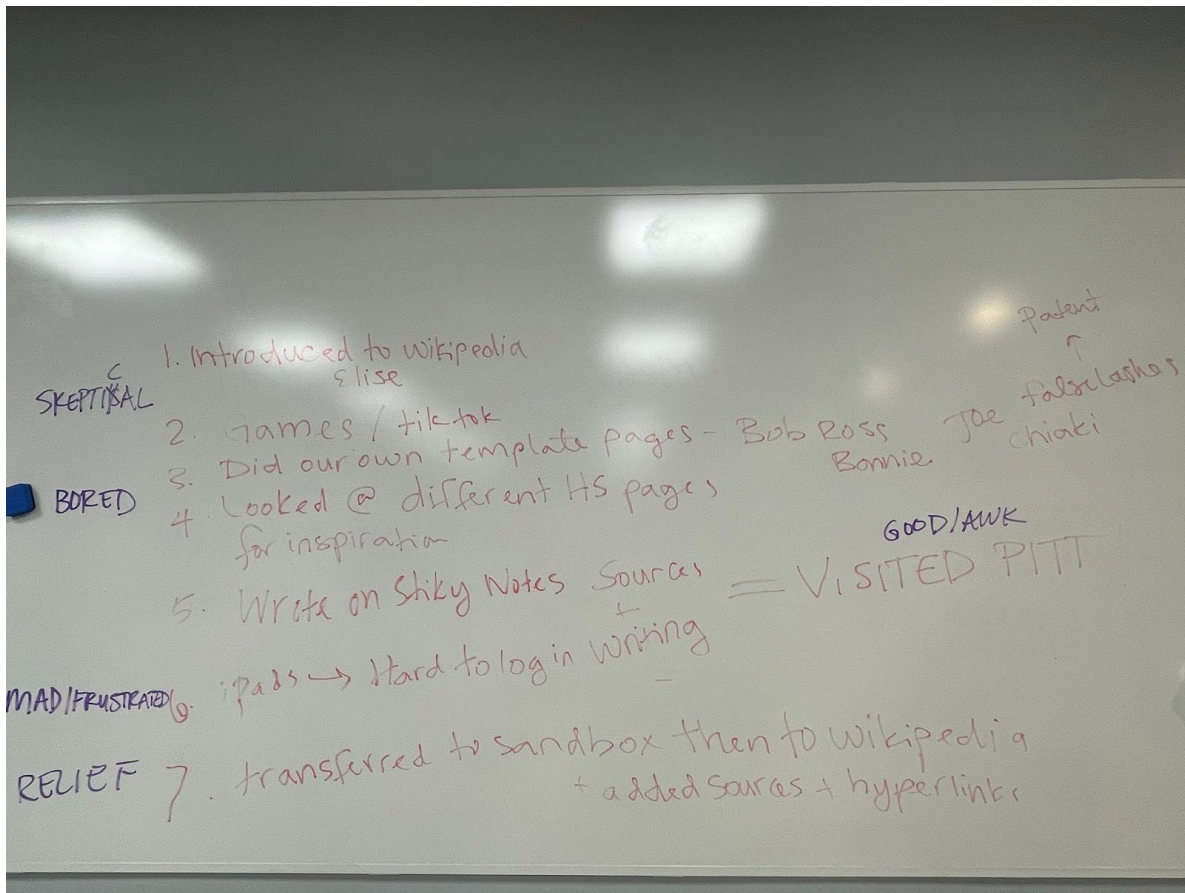 Patent
↑
1. Introduced to wikipedia
Elise
SKEPTICAL
2. Games / tiktok
3. Did our own template pages - Bob Ross Joe falselashes
Bonnie chiaki
BORED
4 Looked @ different HS pages
for inspiration
GOOD/AWK
5. Write on Stiky Notes Sources = VISITED PITT
+
writing
MAD/FRUSTRATED 6. ipads → Hard to log in
RELIEF 7. transferred to sandbox then to wikipedia
+ added sources + hyperlinks